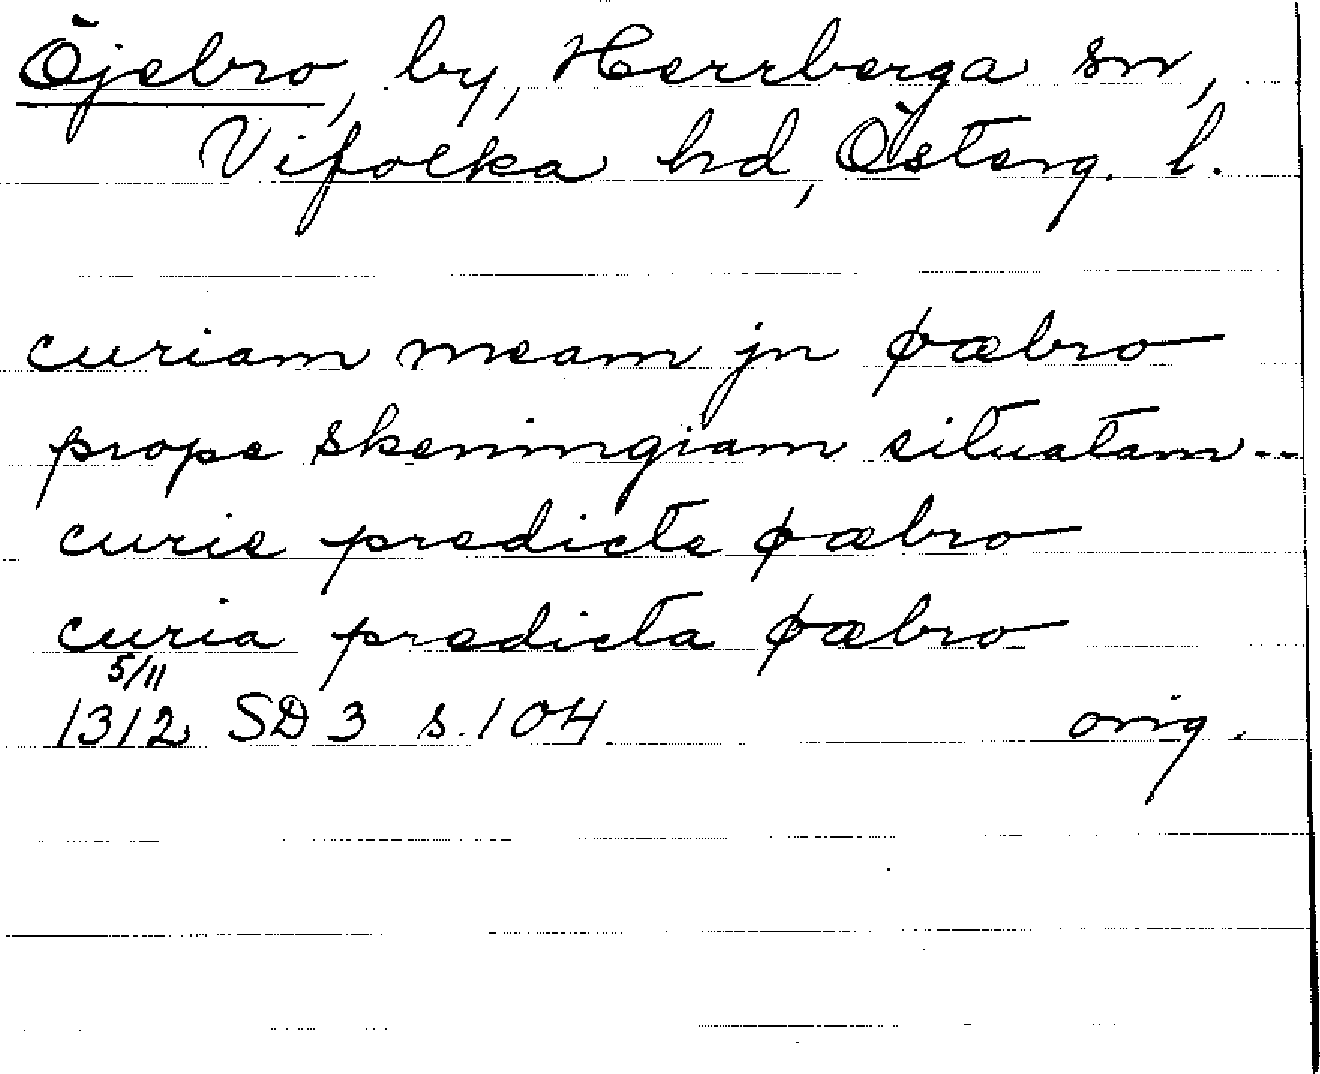 Öjebro, by, Herrberga sn,
Vifolka hd, Österg. l.
curiam meam jn øæbro
prope skeningiam situatam --
curie predicte øæbro
curia predicta øæbro
5/11
1312 SD 3 s. 104 orig.